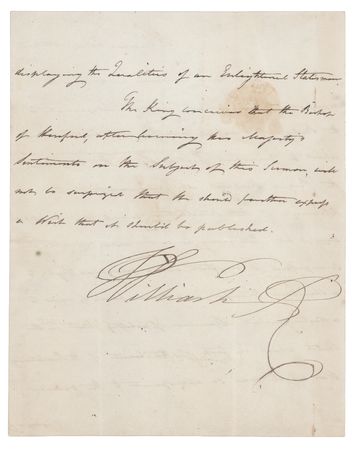 displaying the Qualities of an Enlightened Statesman.
The King conceives that the Bishop
of Hereford, after learning His Majesty's
Sentiments on the Subject of this Sermon, will
not be surprized that He should further express
a Wish that it should be published.
William R